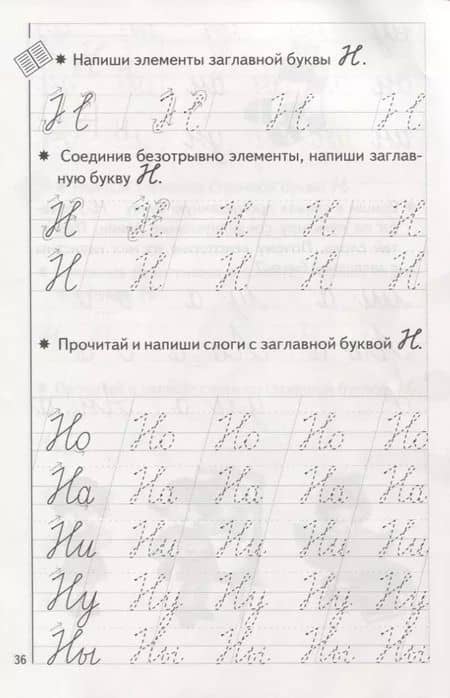 ✷ Напиши элементы заглавной буквы Н.
Н Н Н Н
✷ Соединив безотрывно элементы, напиши заглав-
ную букву Н.
Н Н Н Н Н
Н Н Н Н Н
✷ Прочитай и напиши слоги с заглавной буквой Н.
Но Но Но Но Но
На На На На На
Ни Ни Ни Ни Ни
Ну Ну Ну Ну Ну
Ны Ны Ны Ны Ны
36